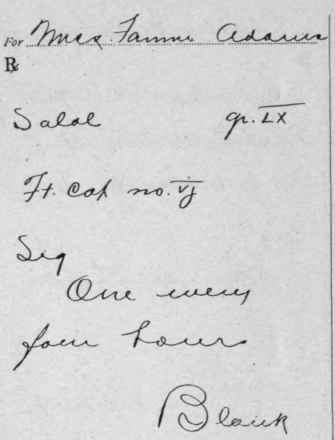 For Mrs. Fannie Adams
℞
Salol gr. LX
Ft. cap no. vj
Sig
One every
four hours
Blank